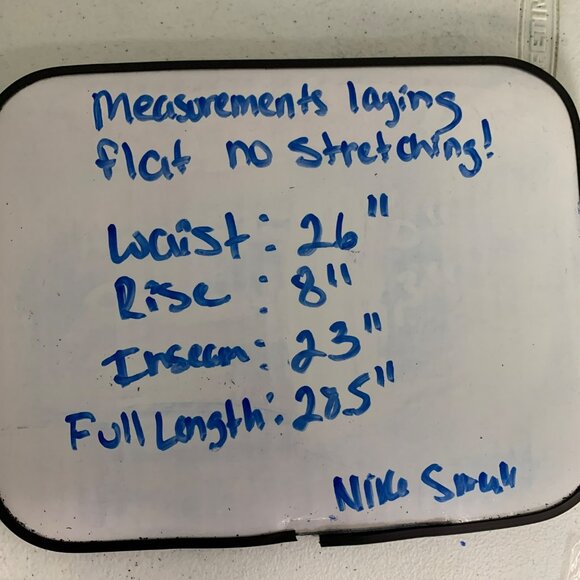 Measurements laying
flat no stretching!
Waist: 26"
Rise : 8"
Inseam: 23"
Full Length: 28.5"
Nike Small